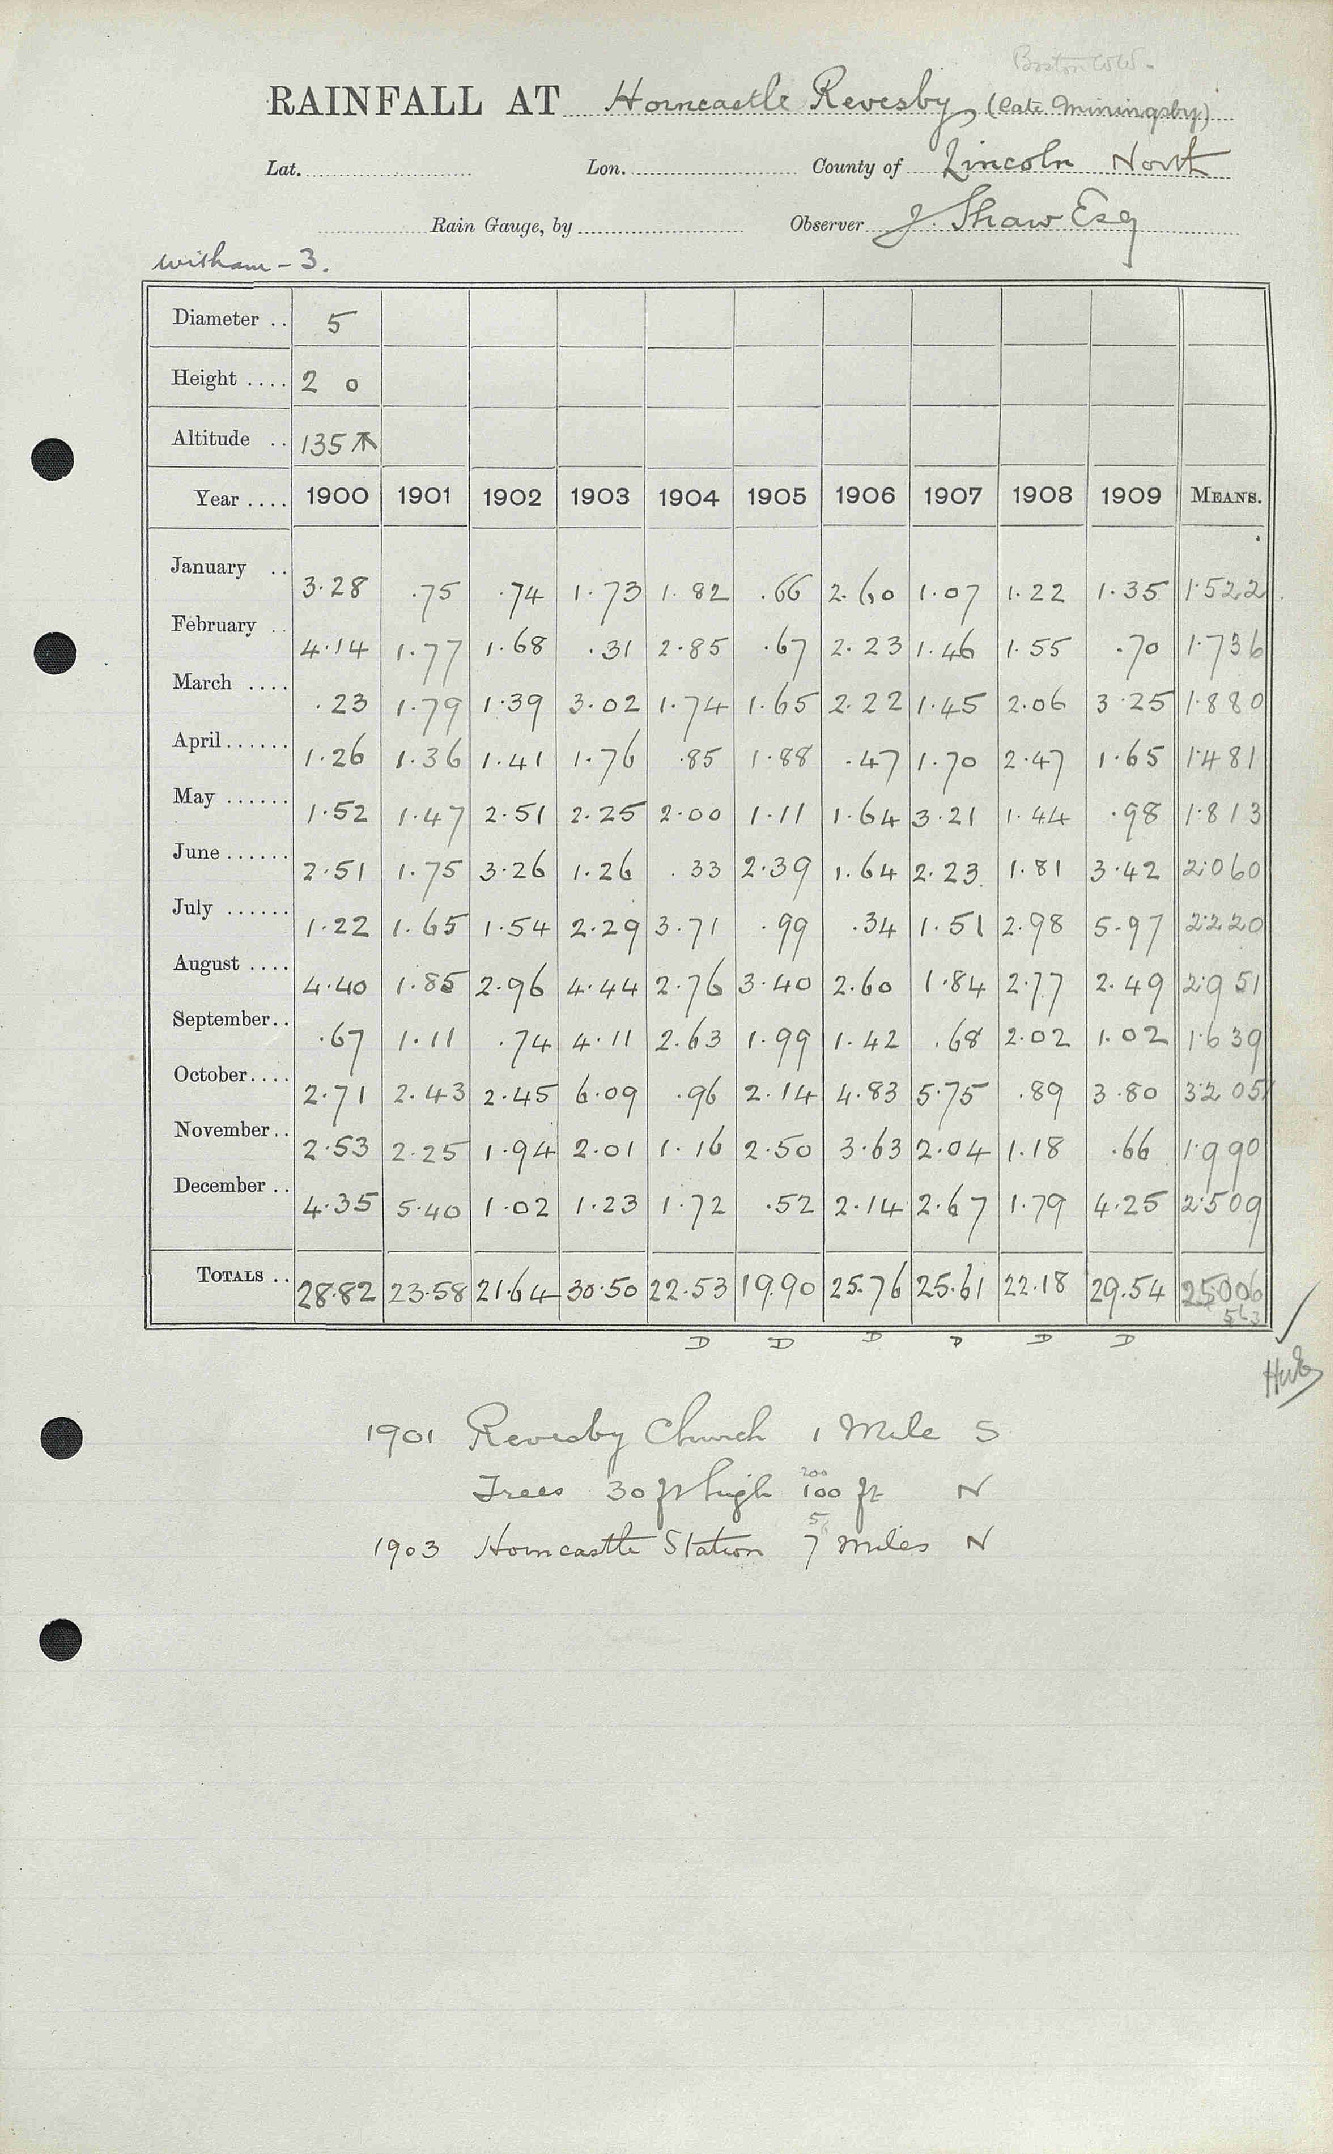 Boston W.W.
RAINFALL AT Horncastle Revesby (late Miningsby)
Lat. Lon. County of Lincoln North
Rain Gauge, by Observer J. Shaw Esq
Witham - 3.
Diameter .. 5
Height .... 2 0
Altitude .. 135
Year .... 1900 1901 1902 1903 1904 1905 1906 1907 1908 1909 MEANS.
January .. 3.28 .75 .74 1.73 1.82 .66 2.60 1.07 1.22 1.35 1.522
February .. 4.14 1.77 1.68 .31 2.85 .67 2.23 1.46 1.55 .70 1.736
March .... .23 1.79 1.39 3.02 1.74 1.65 2.22 1.45 2.06 3.25 1.880
April...... 1.26 1.36 1.41 1.76 .85 1.88 .47 1.70 2.47 1.65 1.481
May ...... 1.52 1.47 2.51 2.25 2.00 1.11 1.64 3.21 1.44 .98 1.813
June...... 2.51 1.75 3.26 1.26 .33 2.39 1.64 2.23 1.81 3.42 2.060
July ...... 1.22 1.65 1.54 2.29 3.71 .99 .34 1.51 2.98 5.97 2.220
August .... 4.40 1.85 2.96 4.44 2.76 3.40 2.60 1.84 2.77 2.49 2.951
September.. .67 1.11 .74 4.11 2.63 1.99 1.42 .68 2.02 1.02 1.639
October.... 2.71 2.43 2.45 6.09 .96 2.14 4.83 5.75 .89 3.80 3.205
November.. 2.53 2.25 1.94 2.01 1.16 2.50 3.63 2.04 1.18 .66 1.990
December .. 4.35 5.40 1.02 1.23 1.72 .52 2.14 2.67 1.79 4.25 2.509
TOTALS .. 28.82 23.58 21.64 30.50 22.53 19.90 25.76 25.61 22.18 29.54 25.006
D D D D D D
1901 Revesby Church 1 Mile S
200
Trees 30 ft high 100 ft N
5
1903 Horncastle Station 7 Miles N